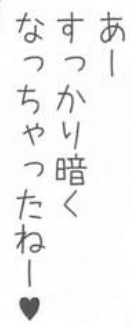 あー
すっかり暗く
なっちゃったねー♥